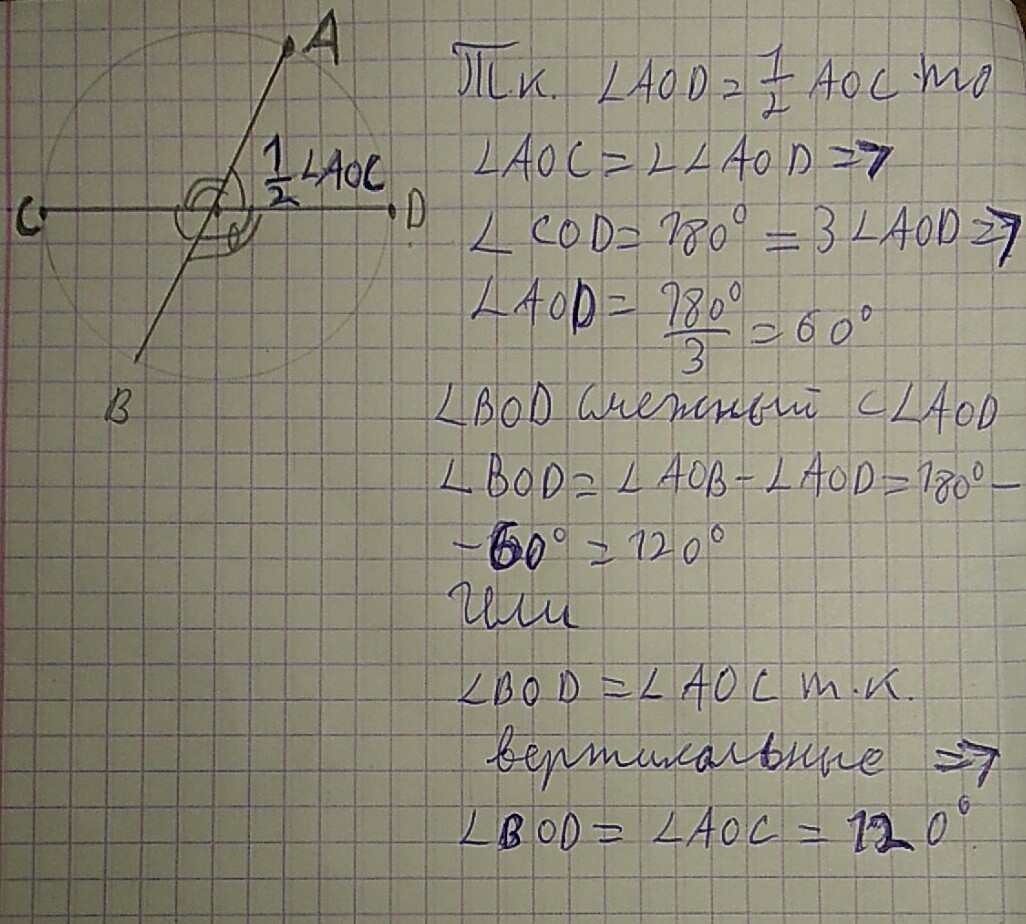 A
1/2 ∠AOC
C
D
O
B
Т.к. ∠AOD = 1/2 AOC то
∠AOC = 2∠AOD =>
∠COD = 180° = 3∠AOD =>
∠AOD = 180°/3 = 60°
∠BOD смежный с ∠AOD
∠BOD = ∠AOB - ∠AOD = 180° -
- 60° = 120°
Или
∠BOD = ∠AOC т.к.
вертикальные =>
∠BOD = ∠AOC = 120°